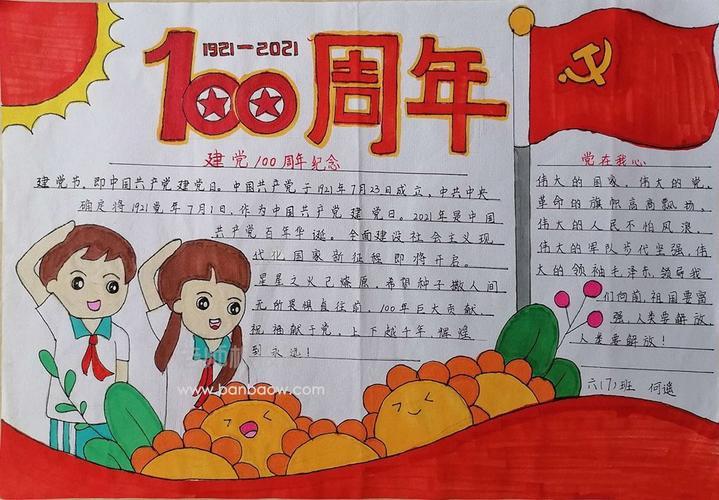 1921-2021
100周年
建党100周年纪念
建党节,即中国共产党建党日。中国共产党于1921年7月23日成立,中共中央
确定将1921党年7月1日,作为中国共产党建党日。2021年是中国
共产党百年华诞。全面建设社会主义现
代化国家新征程即将开启。
星星之火已燎原,希望种子撒人间
无所畏惧直往前,100年巨大贡献,
祝福献于党,上下越千年,辉煌
到永远!
党在我心
伟大的国家,伟大的党,
革命的旗帜高高飘扬,
伟大的人民不怕风浪,
伟大的军队步代坚强,伟
大的领袖毛泽东领导我
们向前,祖国要富
强,人类要解放,
人类要解放!
六(7)班 何遥
www.banbaow.com